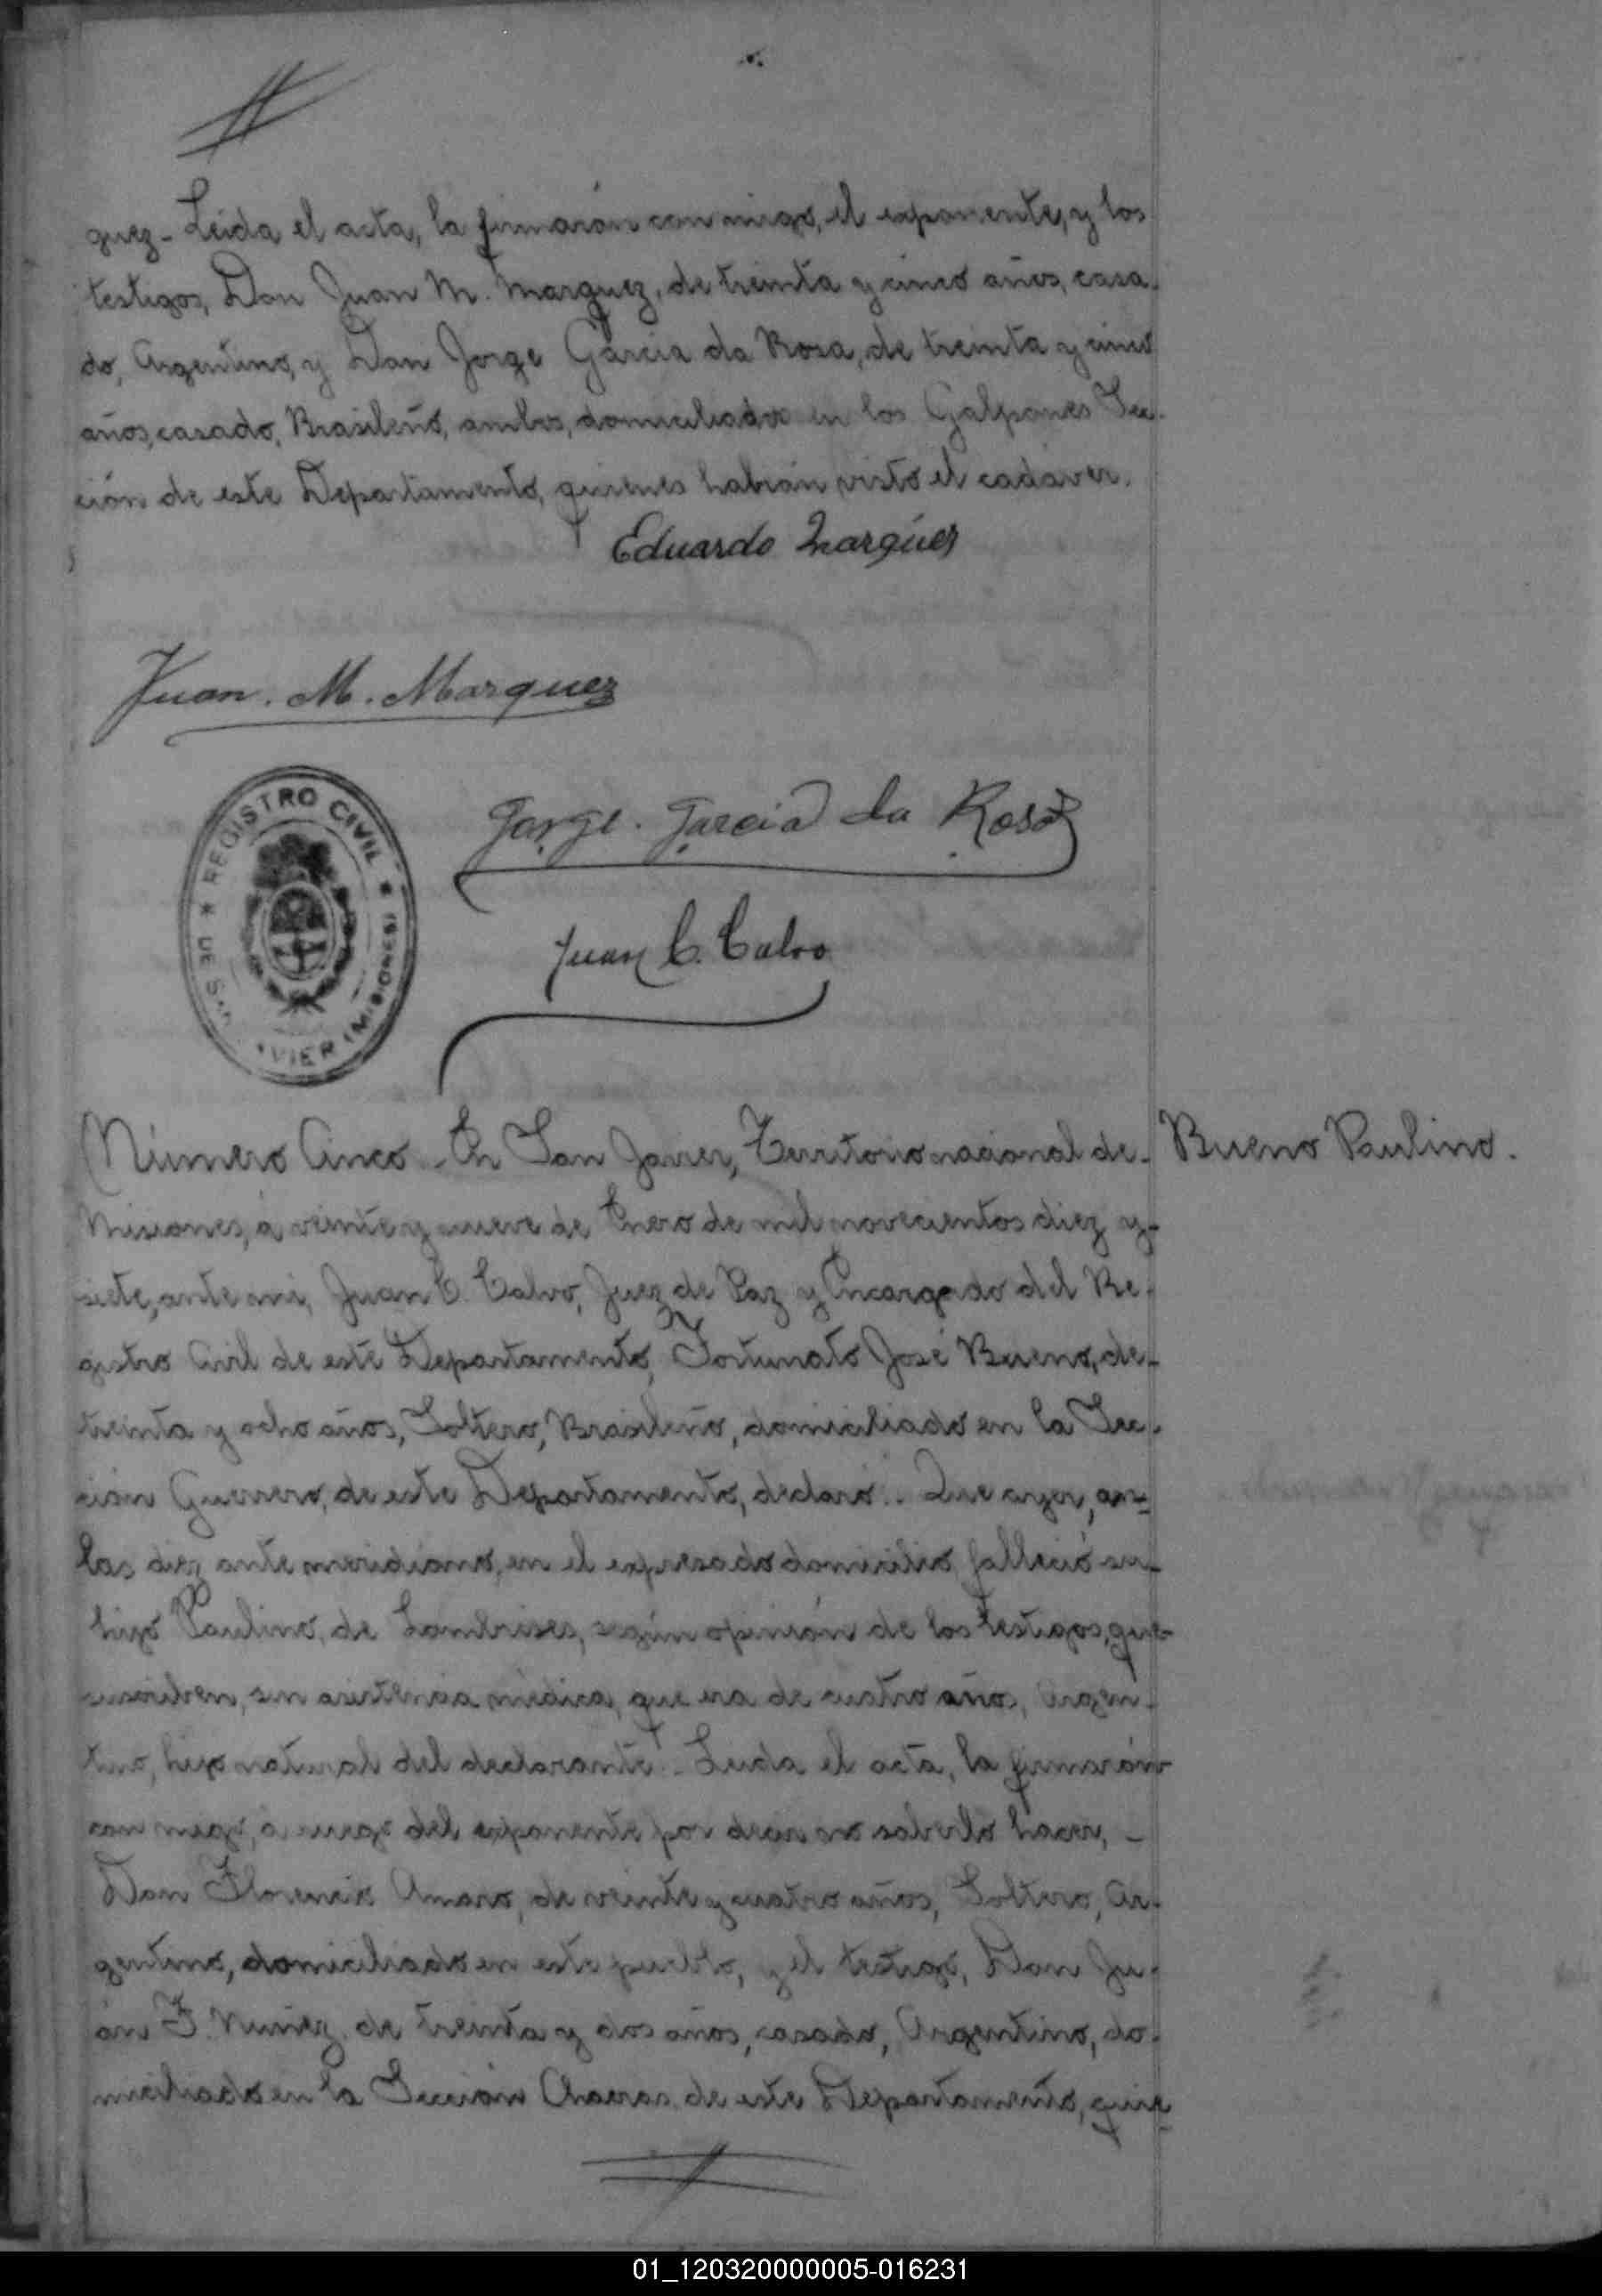 guez - Leida el acta, la firmarón con migo, el exponente, y los
testigos, Don Juan M. Marquez, de treinta y cinco años, casa-
do, Argentino, y Don Jorge Garcia da Rosa, de treinta y cinco
años, casado, Brasileño, ambos, domiciliados en los Galpones Sec-
ción de este Departamento, quienes habian visto el cadáver.
Eduardo Marqúez
Juan. M. Marquez
REGISTRO CIVIL
Jorge. Garcia da Rosa
Juan C. Calvo
Número Cinco - En San Javier, Territorio nacional de-
Bueno Paulino.
Misiones, á veinte y nueve de Enero de mil novecientos diez y-
siete, ante mi, Juan C. Calvo, Juez de Paz y Encargado del Re-
gistro Civil de este Departamento, Fortunato José Bueno, de-
treinta y ocho años, Soltero, Brasileño, domiciliado en la Sec-
ción Guerrero, de este Departamento, declaró:. Que ayer, a-
las diez ante meridiano, en el expresado domicilio, falleció su-
hijo Paulino, de Lombrises, según opinión de los testigos, que-
suscriben, sin asistencia médica, que era de cuatro años, Argen-
tino, hijo natural del declarante - Leida el acta, la firmarón
con migo, a ruego del exponente por decir no saberlo hacer, -
Don Florencio Amaro, de veinte y cuatro años, Soltero, Ar-
gentino, domiciliado en este pueblo, y el testigo, Don Ju-
án F. Nuñez, de treinta y dos años, casado, Argentino, do-
miciliado en la Sección Chacras, de este Departamento, quie-
01_120320000005-016231